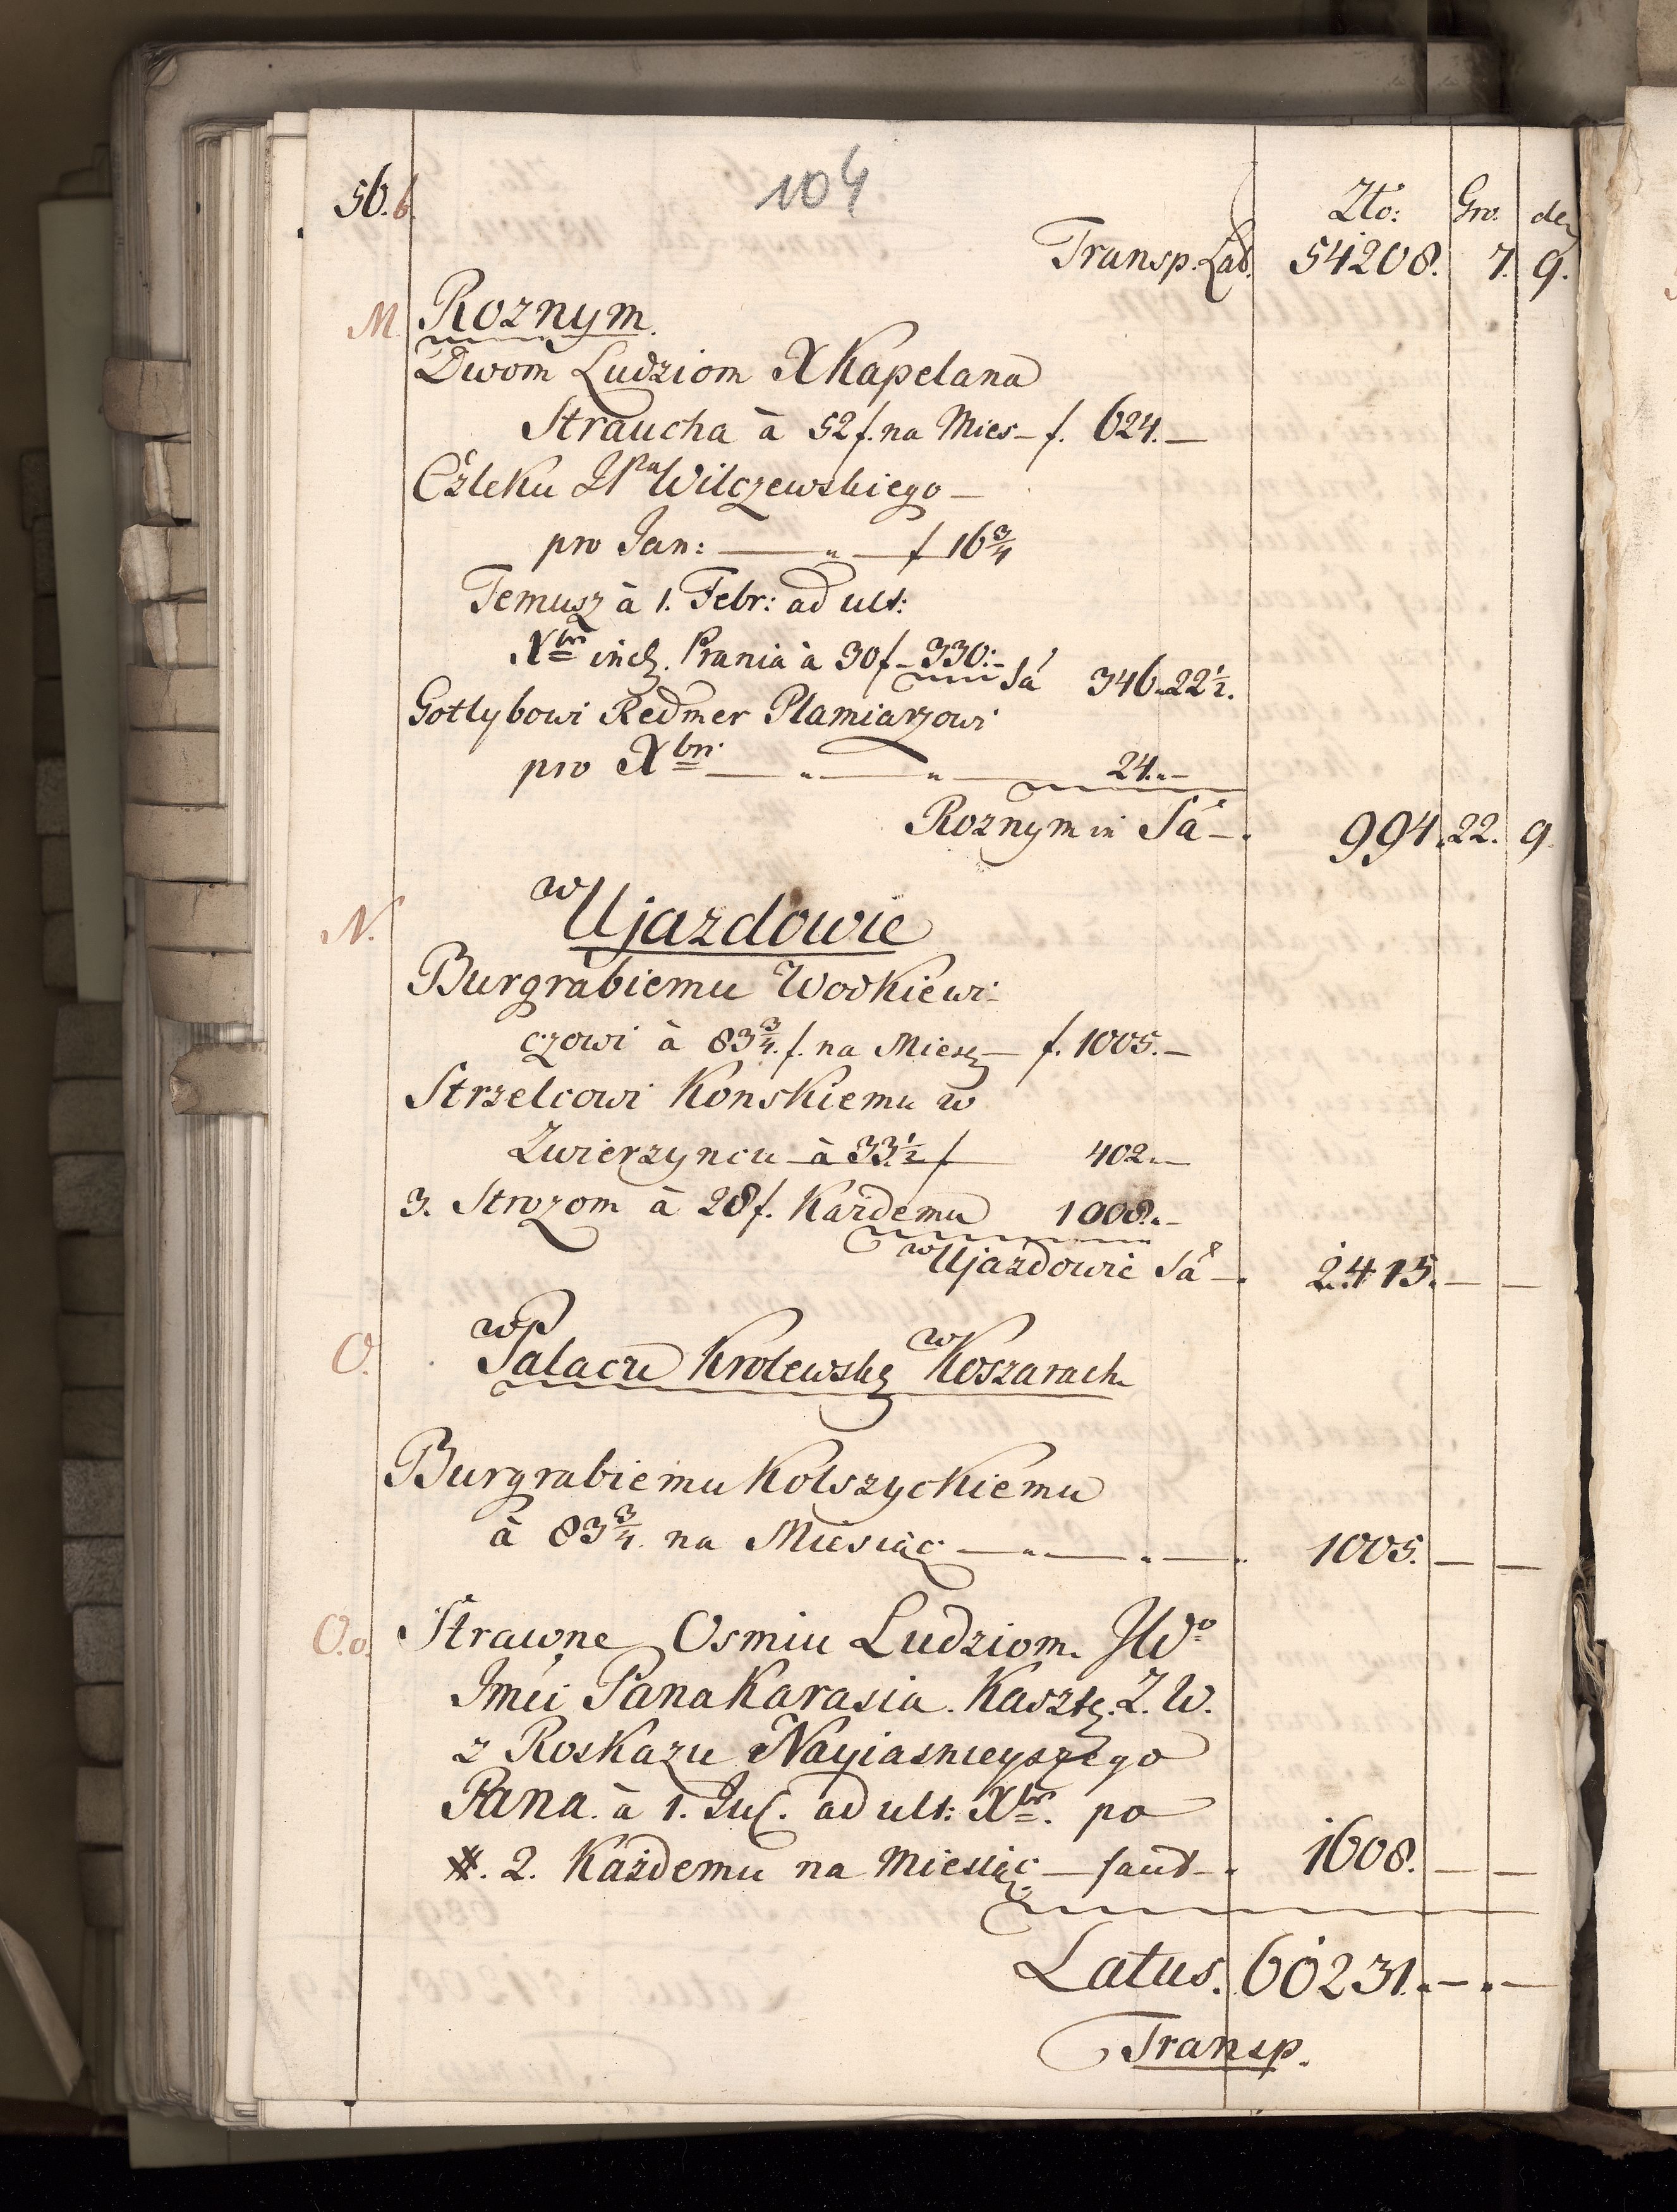 56.b.
104
Zło: Gro. den
Transp. Lat. 54208. 7. 9.
M. Roznym.
Dwom Ludziom X Kapelana
Straucha à 52 f. na Mies - f. 624. -
Człeku JPa Wilczewskiego -
pro Jan: - " - f 16 3/4
Temusz à 1. Febr: ad ult:
Xbris incl. Prania à 30 f - 330: - Sa 346 " 22 1/2.
Gotlybowi Redmer Plamiarzowi
pro Xbri - " - " - 24. " -
Roznym in Sa - . 994. 22. 9
N. w Ujazdowie
Burgrabiemu Wodkiewi:
czowi à 83 3/4. f. na Miesc - f. 1005. -
Strzelcowi Konskiemu w
Zwierzyncu - à 33. 1/2 f - 402 " -
3. Strozom à 28 f. Każdemu 1008 " -
w Ujazdowie Sa - . 2415. - -
O. w Palacu Krolewsk w Koszarach
Burgrabiemu Kolszyckiemu
à 83 3/4. na Miesiąc - " - " - " 1005. - -
O.o. Strawne Osmiu Ludziom JWo
Imći Pana Karasia. Kaszt. Z. W.
z Roskazu Nayiasnieyszego
Pana. à 1. Jul. ad ult: Xbr. po
#. 2. Każdemu na Miesiąc - faud - . 1608. - -
Latus. 60231. " - " -
Transp.